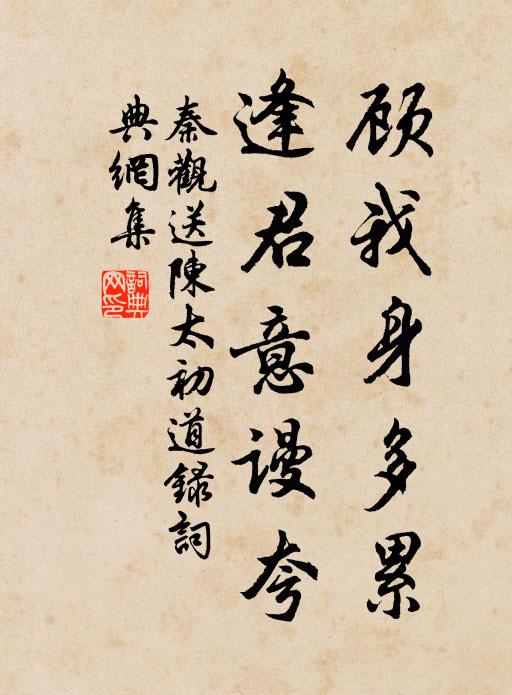 顾我身多累
逢君意謾夸
秦觀送陳太初道錄詞
典網集
詞典网印